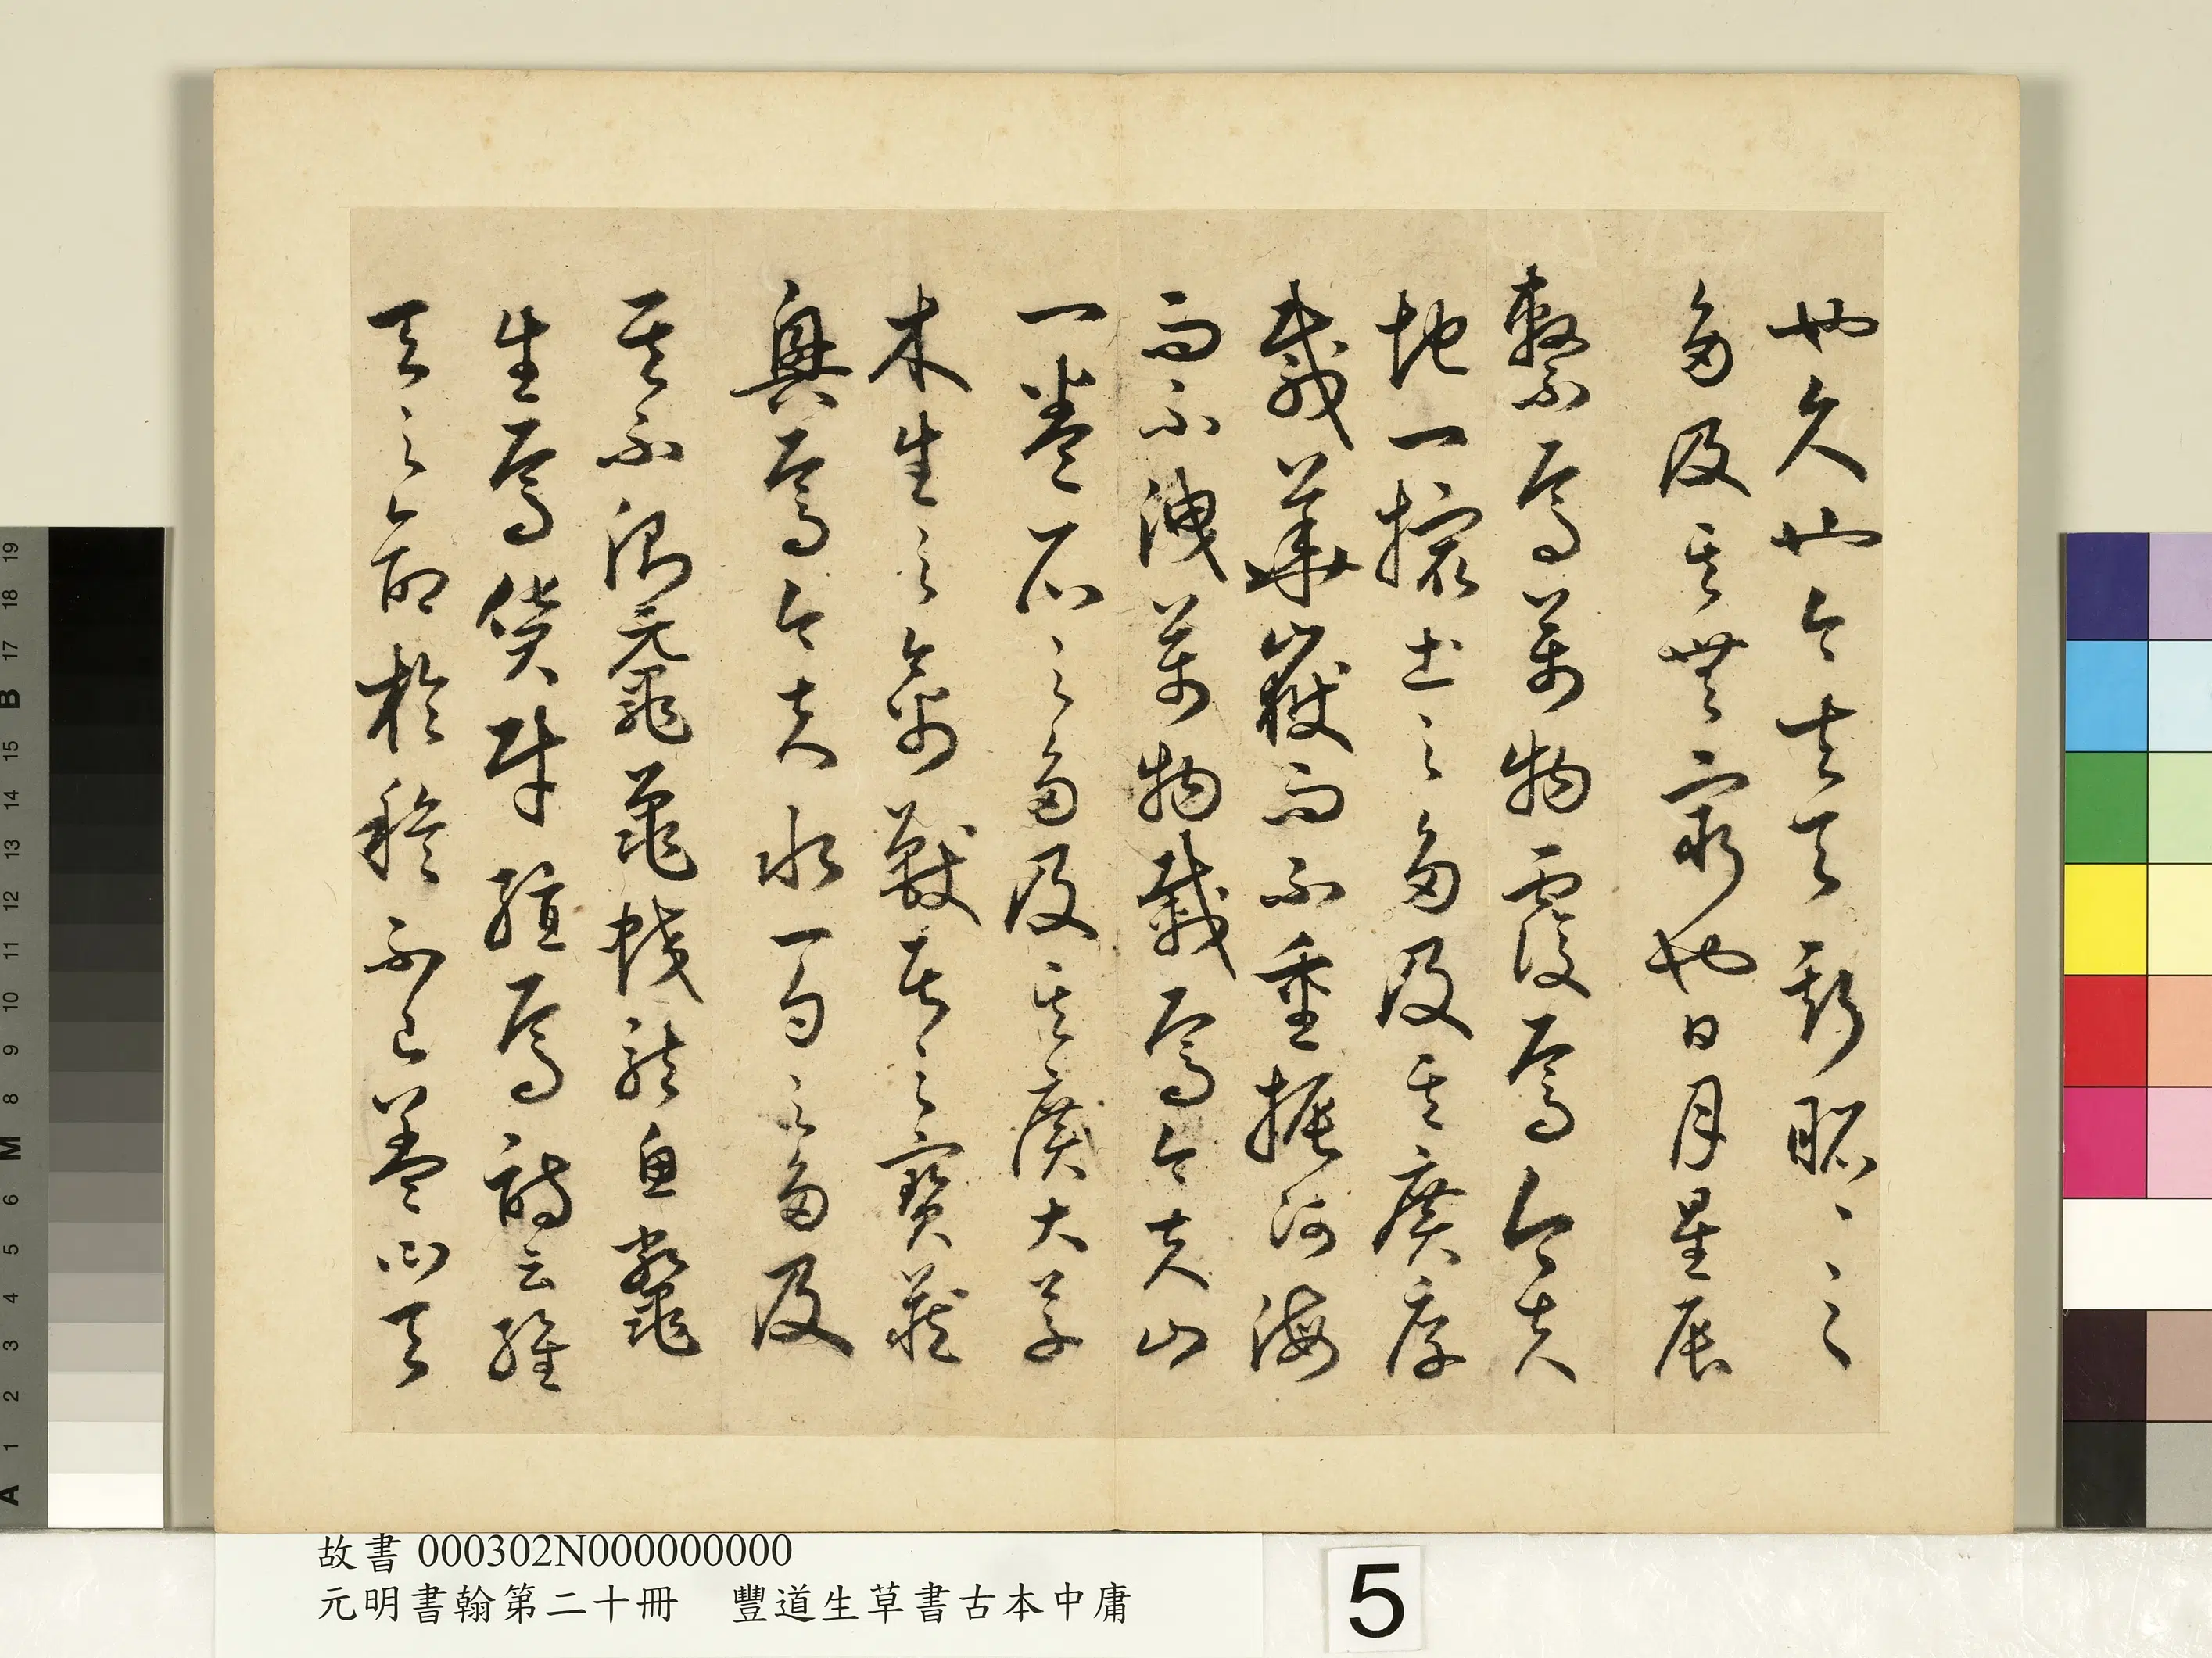 也久也今夫天斯昭〻〻之
多及其無窮也日月星辰
繫焉萬物覆焉今夫
地一撮土之多及其廣厚
載華嶽而不重振河海
而不洩萬物載焉今夫山
一卷石之多及其廣大草
木生之禽獸居之寶藏
興焉今夫水一勺之多及
其不測黿鼉蛟龍魚鼈
生焉貨財殖焉詩云維
天之命於穆不已蓋曰天
故書 000302N000000000
元明書翰第二十冊 豐道生草書古本中庸
5
A 1 2 3 4 5 6 M 8 9 10 11 12 13 14 15 B 17 18 19